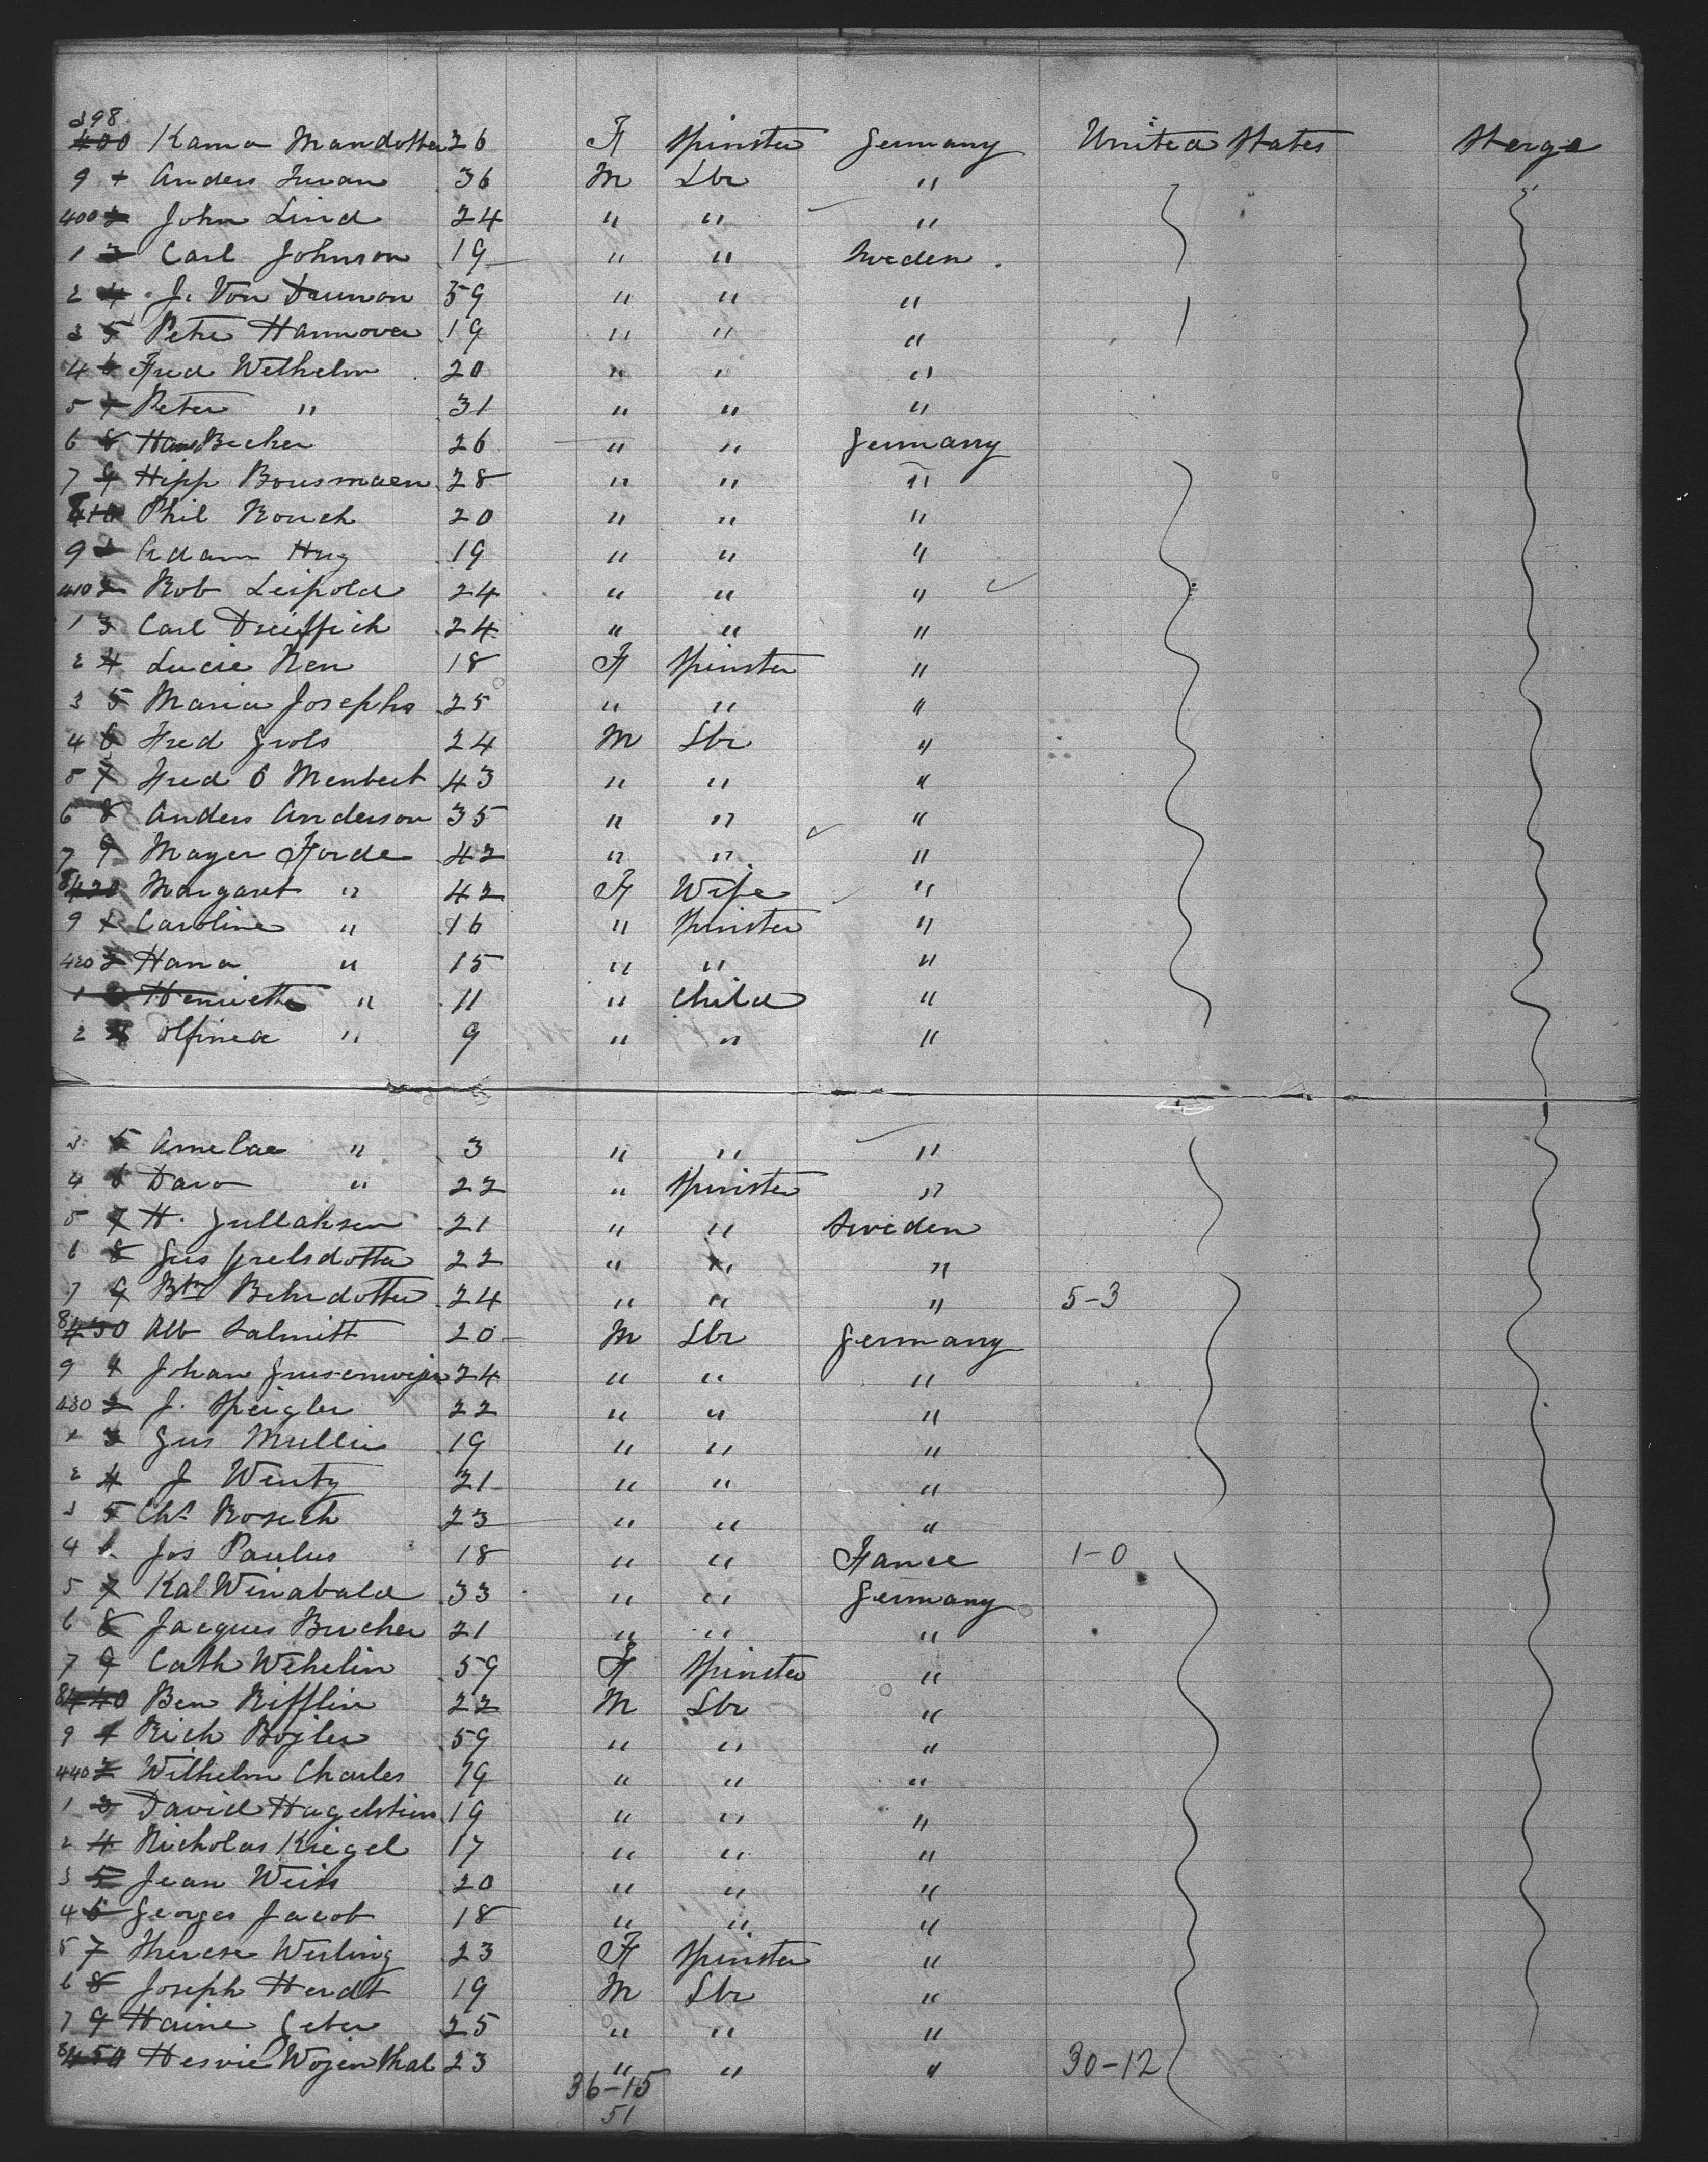 398
400 Kama Mandotter 26 F Spinster Germany United States Sterge
9 1 Anders Swan 36 M Lbr "
400 2 John Lind 24 " " "
1 3 Carl Johnson 19 " " Sweden
2 4 J. Von Daunon 59 " " "
3 5 Peter Hannover 19 " " "
4 6 Fred Wilhelm 20 " " "
5 7 Peter " 31 " " "
6 8 Hans Becher 26 " " Germany
7 9 Hipp Bousmaen 28 " " "
8 410 Phil Rouch 20 " " "
9 1 Adam Hug 19 " " "
410 2 Rob Leipold 24 " " "
1 3 Carl Dreiffich 24 " " "
2 4 Lucie Ren 18 F Spinster "
3 5 Maria Josephs 25 " " "
4 6 Fred Grols 24 M Lbr "
5 7 Fred O Menbert 43 " " "
6 8 Anders Anderson 35 " " "
7 9 Mayer Forde 42 " " "
8 420 Margaret " 42 F Wife "
9 1 Caroline " 16 " Spinster "
420 2 Hana " 15 " " "
1 3 Henriette " 11 " Child "
2 4 Olfinea " 9 " " "
3 5 Amelae " 3 " " "
4 6 Dara " 22 " Spinster "
5 7 H. Gullaksen 21 " " Sweden
6 8 Gus Grelsdotter 22 " " "
7 9 Btn Behrdotter 24 " " " 5-3
8 430 Alb Salmitt 20 M Lbr Germany
9 1 Johan 24 " " "
430 2 J. Speigler 22 " " "
1 3 Gus Mullin 19 " " "
2 4 J Wentz 21 " " "
3 5 Chs Rosech 23 " " "
4 6 Jos Paulus 18 " " France 1-0
5 7 Kal Winabald 33 " " Germany
6 8 Jacques Bucher 21 " " "
7 9 Cath Wehelin 59 F Spinster "
8 440 Ben Rifflin 22 M Lbr "
9 1 Rich Bojler 59 " " "
440 2 Wilhelm Charles 19 " " "
1 3 David Hagelstein 19 " " "
2 4 Nicholas Kiegel 17 " " "
3 5 Jean Weiss 20 " " "
4 6 Georges Jacob 18 " " "
5 7 Therese Werling 23 F Spinster "
6 8 Joseph Herdt 19 M Lbr "
7 9 Haine Geber 25 " " "
8 450 Hesvie Wozenthal 23 " " " 30-12
36-15
51